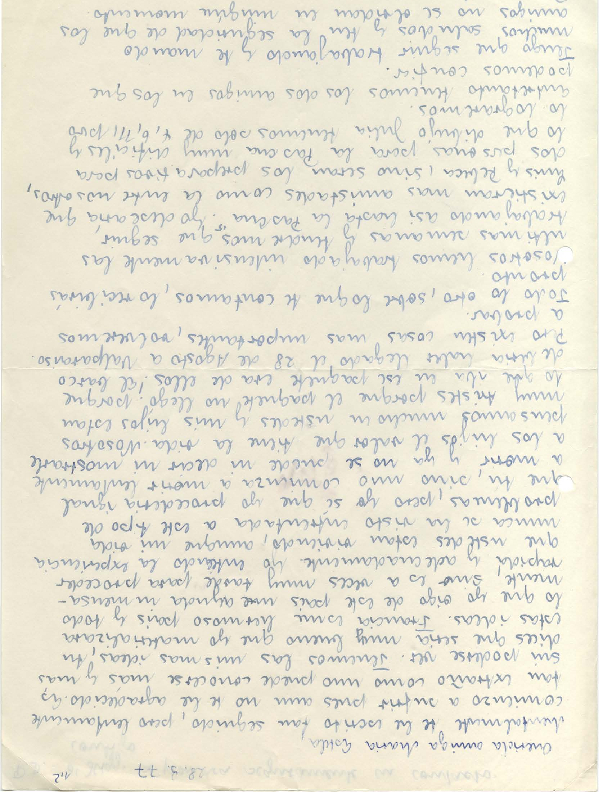 28.9.77
1.2
Querida amiga María Estela,
dentalmente te he escrito tan seguido, pero lentamente
comienzo a sufrir pues aun no te he agradecido. Es
tan extraño como uno puede conocerse más y más
sin poderse ver. Tenemos las mismas ideas, tu
dices que sería muy bueno que yo materializara
estas ideas. Francia es mi hermoso país y todo
lo que yo oigo de este país me ayuda inmensa-
mente, sino es a veces muy tarde para proceder
rápida y adecuadamente. Yo entiendo la experiencia
que ustedes están viviendo, aunque mi vida
nunca se ha visto enfrentada a este tipo de
problemas, pero yo sí que procedería igual
que tu, sino uno comienza a morir lentamente
a mentir y ya no se puede ni decir ni mostrarle
a los hijos el valor que tiene la vida. Nosotros
pensamos mucho en ustedes y mis hijos están
muy tristes porque el paquete no llegó, porque
lo que iba en ese paquete era de ellos! El barco
debiera haber llegado el 28 de Agosto a Valparaíso.
Pero existen cosas mas importantes, volveremos
a probar.
Todo lo otro, sobre lo que te contamos, lo recibirás
pronto
Nosotros hemos trabajado intensivamente las
ultimas semanas y tendremos que seguir
trabajando así hasta la Pascua. Yo desearía, que
existieran mas amistades como la entre nosotros,
Luis y Rebeca, sino serán los preparativos para
dos personas para la Pascua muy difíciles y
lo que dibujo Julia tenemos solo de 4, 6, 711 pero
lo lograremos.
entretanto tenemos los dos amigos en los que
podemos confiar.
Tengo que seguir trabajando y te mando
muchos saludos y ten la seguridad de que los
amigos no se olvidan en ningún momento.